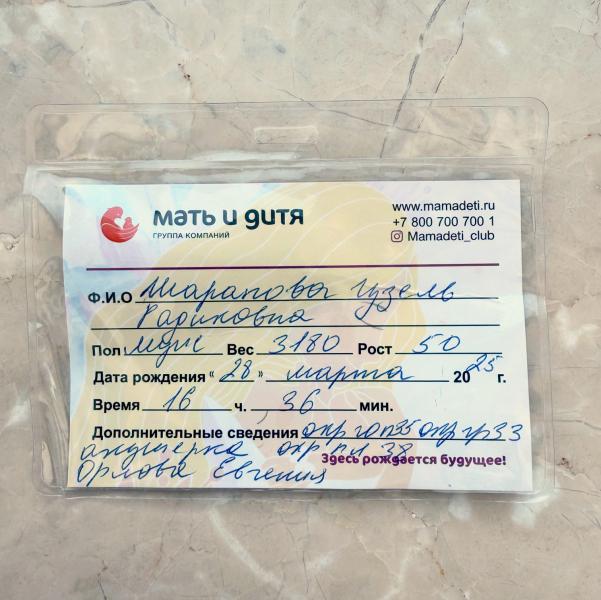 мать и дитя
ГРУППА КОМПАНИЙ
www.mamadeti.ru
+7 800 700 700 1
Mamadeti_club
Ф.И.О Шарапова Гузель
Радиковна
Пол муж Вес 3180 Рост 50
Дата рождения " 28 " марта 2025 г.
Время 16 ч. 36 мин.
Дополнительные сведения окр гол 35 окр гр 33
акушерка окр пл 38
Здесь рождается будущее!
Орлова Евгения